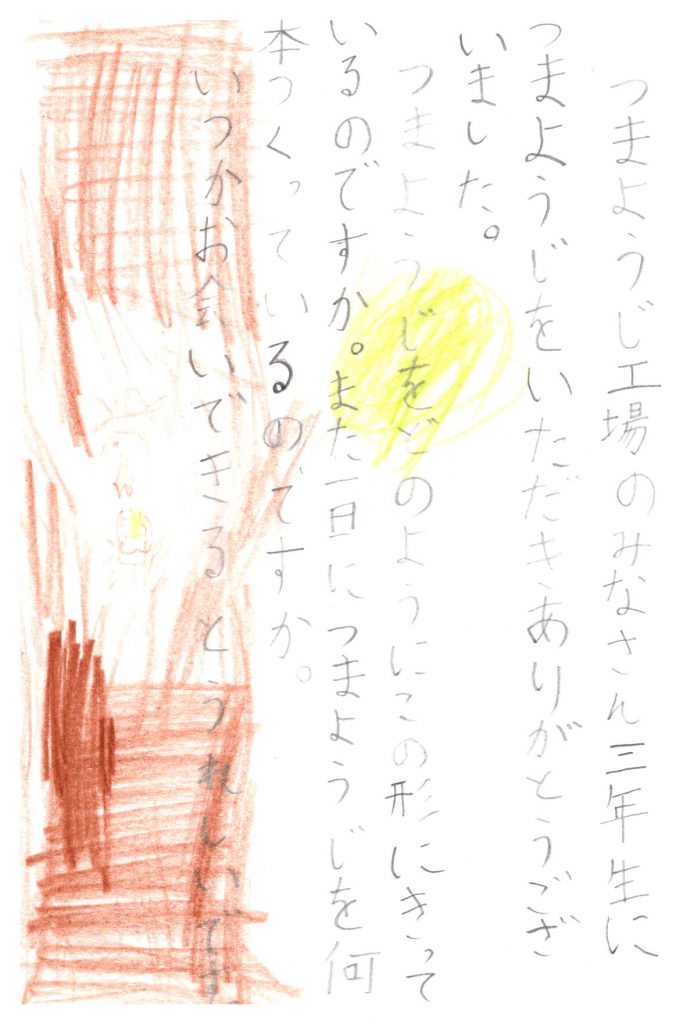 つまようじ工場のみなさん三年生に
つまようじをいただきありがとうござ
いました。
つまようじをどのようにこの形にきって
いるのですか。また一日につまようじを何
本つくっているのですか。
いつかお会いできるとうれしいです。